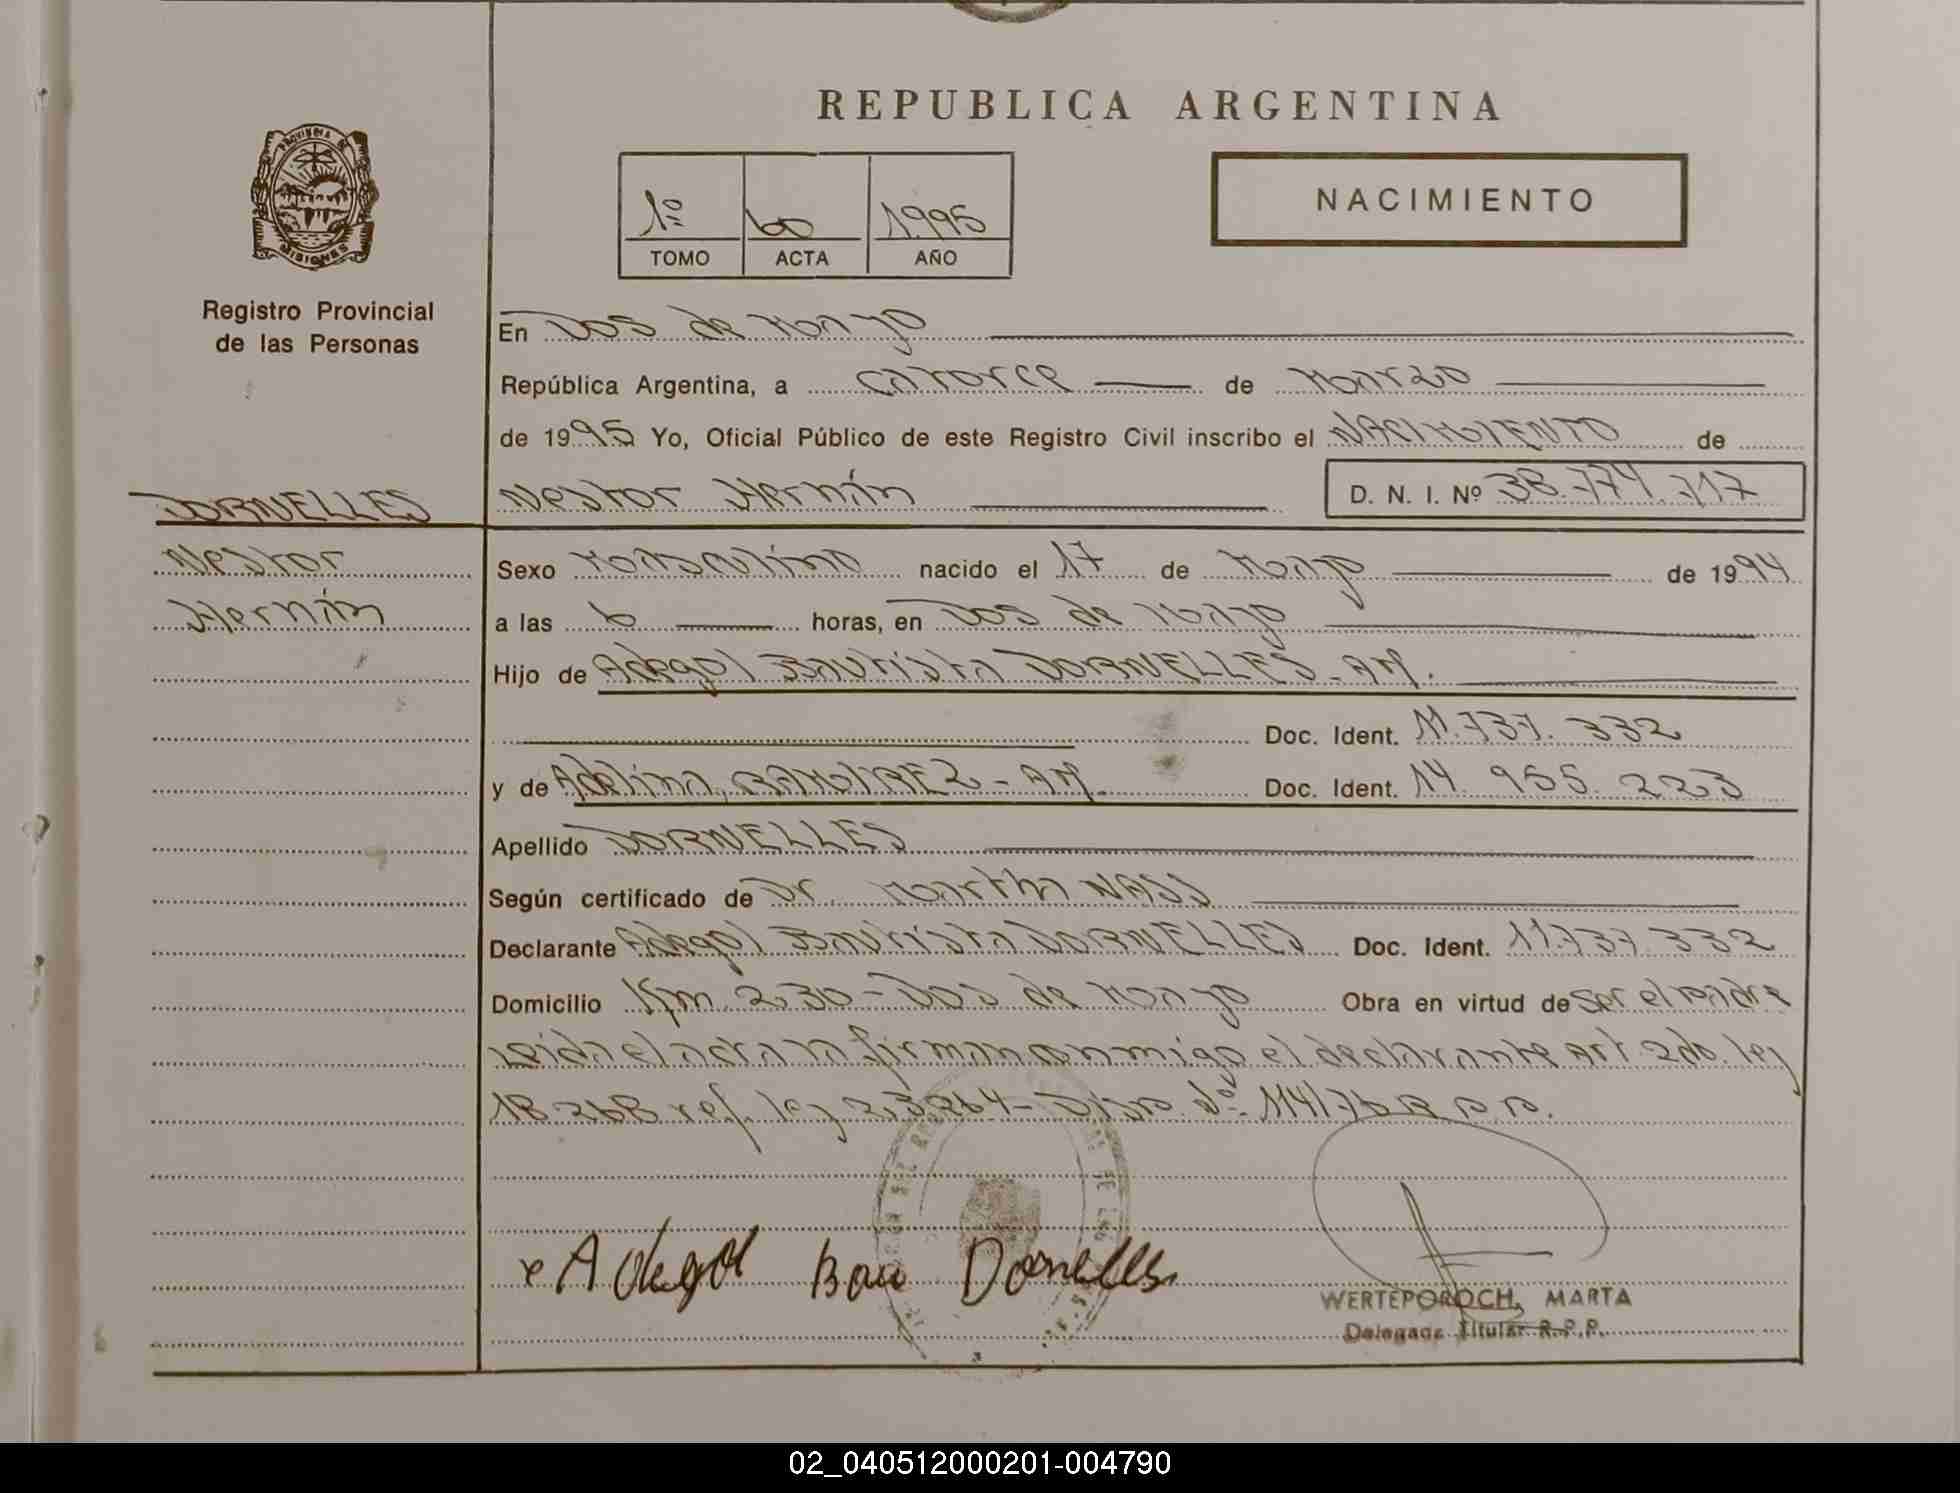 REPUBLICA ARGENTINA
PROVINCIA DE MISIONES
1º 60 1.995
TOMO ACTA AÑO
NACIMIENTO
Registro Provincial
de las Personas
En Dos de Mayo
República Argentina, a catorce de Marzo
de 1995 Yo, Oficial Público de este Registro Civil inscribo el NACIMIENTO de
DORNELLES
Nestor Hernán D. N. I. Nº 38.774.717
Nestor
Hernán
Sexo Masculino nacido el 17 de Mayo de 1994
a las 6 horas, en Dos de Mayo
Hijo de Adegol Bautista DORNELLES - AM.
Doc. Ident. 11.737.332
y de Adelina, RAMIREZ - AM. Doc. Ident. 14.955.223
Apellido DORNELLES
Según certificado de Dr. Martha NASS
Declarante Adegol Bautista DORNELLES Doc. Ident. 11.737.332
Domicilio Km. 230 - Dos de Mayo Obra en virtud de ser el padre
Leida el acta la firman conmigo el declarante Art. 2do. ley
18.268 ref. ley 23.264 - Disp. Nº 114/76 R.P.P.
x Adegol Bau Dornelles
WERTEPOROCH, MARTA
Delegada Titular R.P.P.
02_040512000201-004790